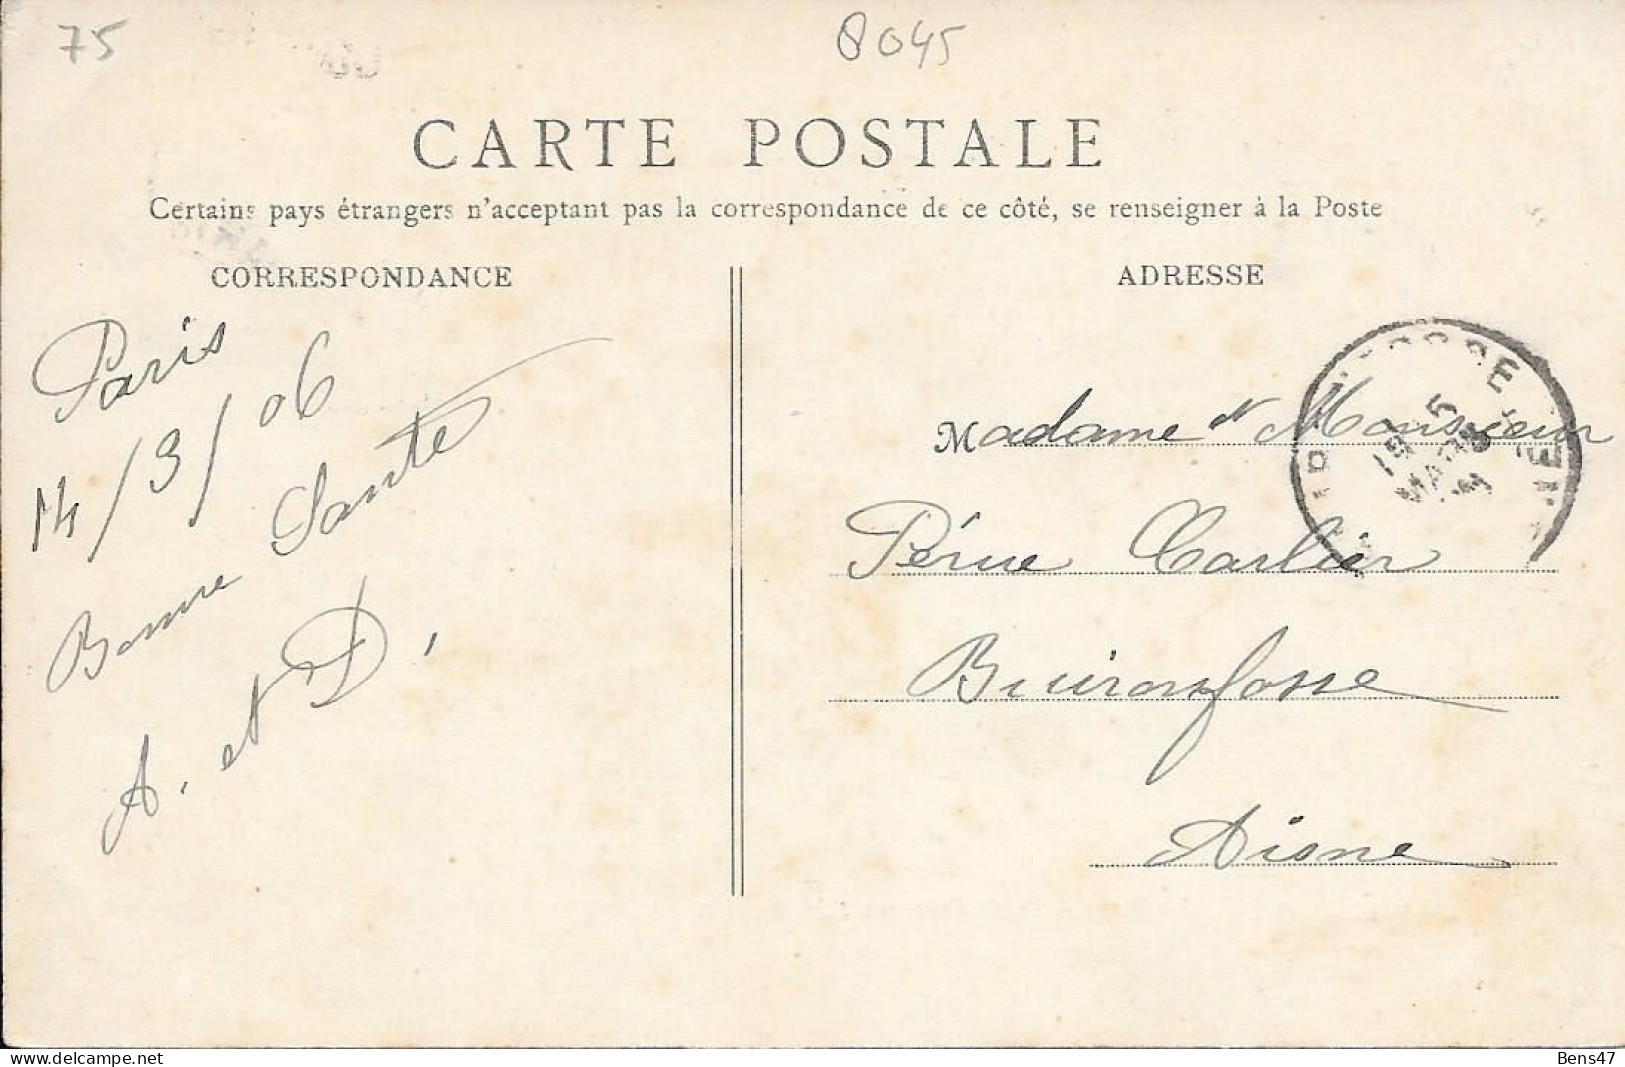 75
8045
CARTE POSTALE
Certains pays étrangers n'acceptant pas la correspondance de ce côté, se renseigner à la Poste
CORRESPONDANCE
Paris
14/3/06
Bonne Santé
A. et D.
ADRESSE
Madame et Monsieur
Pérue Carlier
Buironfosse
Aisne
15
MARS
Bens47